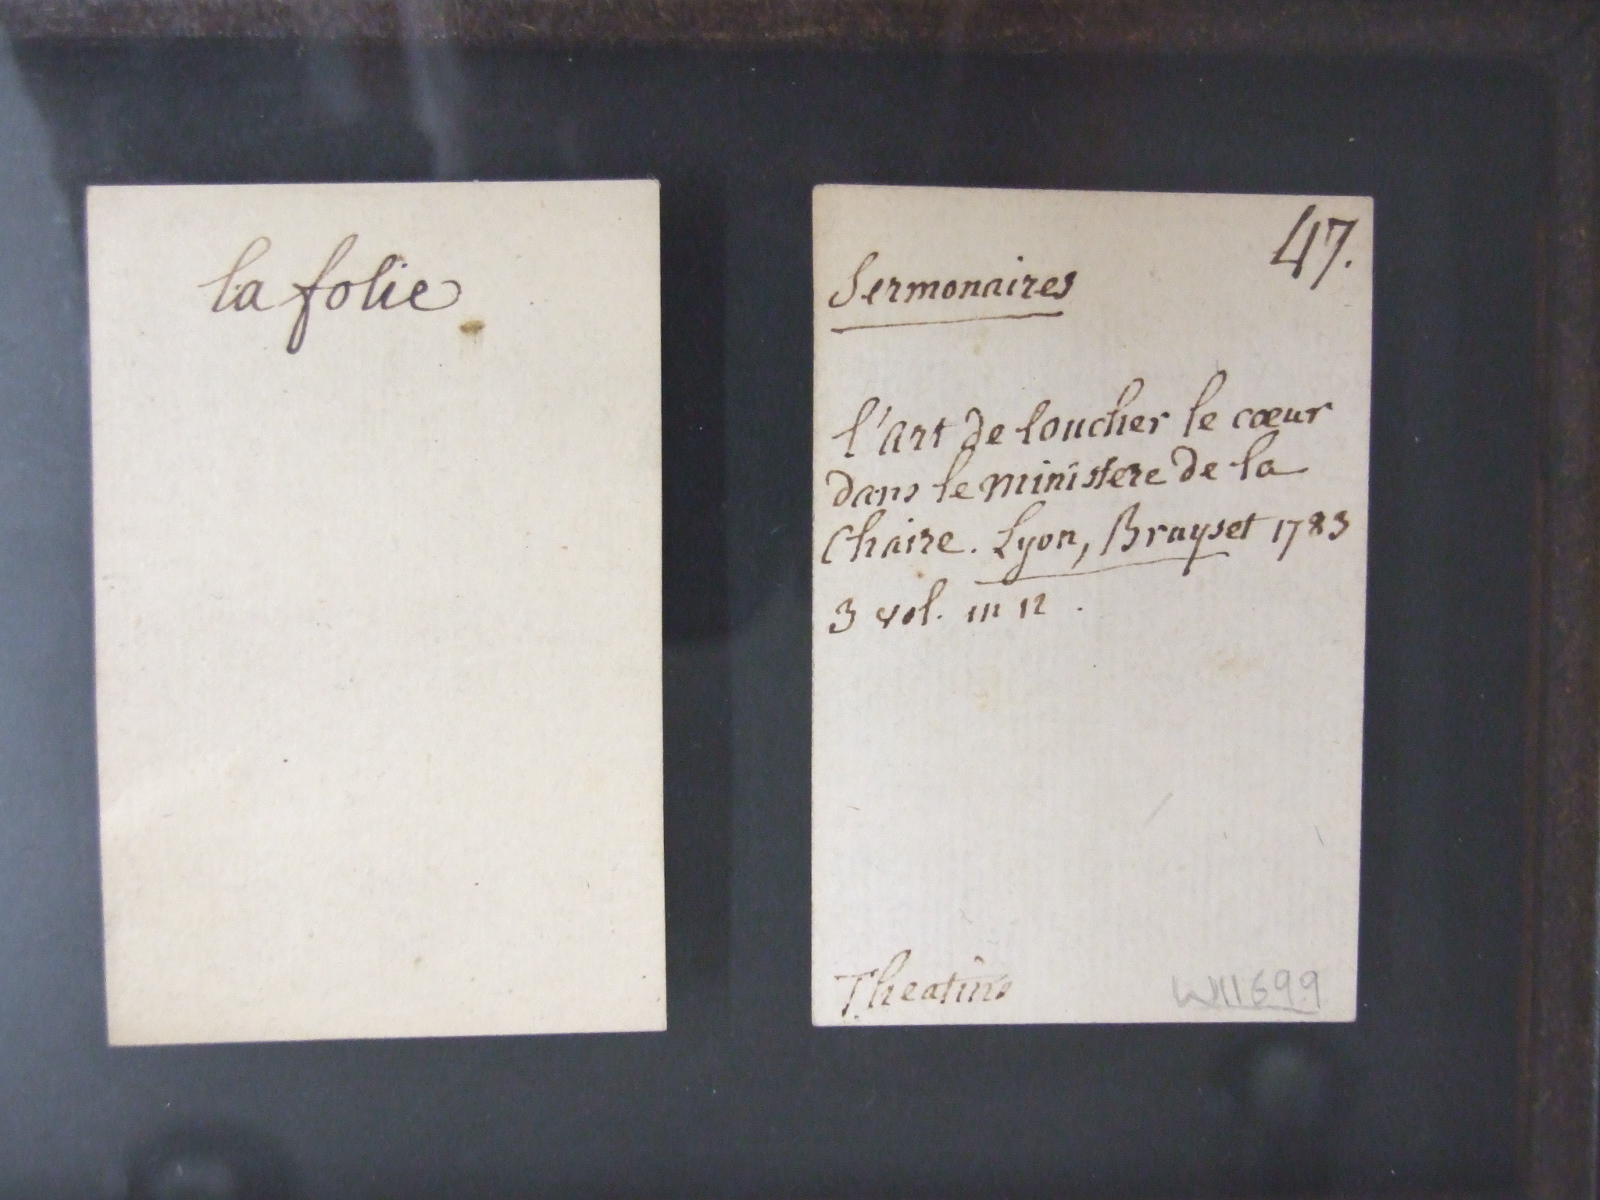 la folie
47.
Sermonaires
l'art de toucher le cœur
dans le ministere de la
Chaire. Lyon, Bruyset 1783
3 vol. in 12.
Theatins
W11699